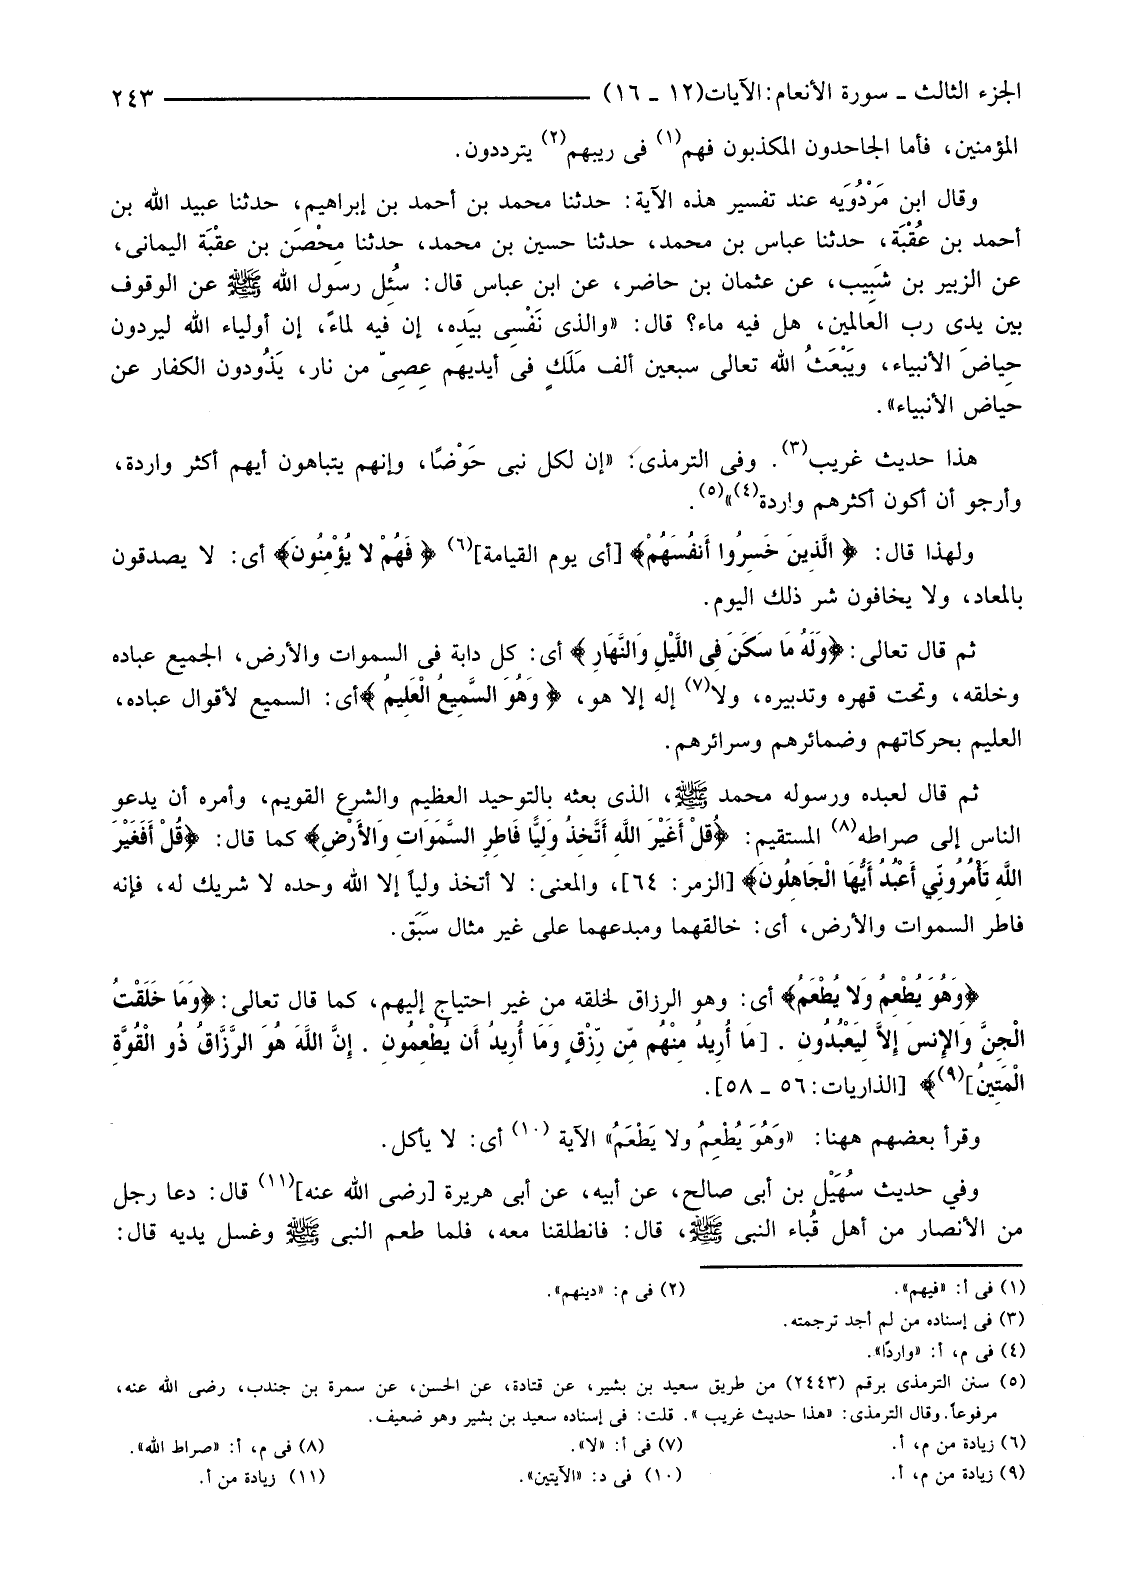 الجزء الثالث ـ سورة الأنعام: الآيات (١٢ ـ ١٦) ٢٤٣
المؤمنين، فأما الجاحدون المكذبون فهم(١) فى ريبهم(٢) يترددون.
وقال ابن مَرْدُوَيه عند تفسير هذه الآية: حدثنا محمد بن أحمد بن إبراهيم، حدثنا عبيد الله بن
أحمد بن عُقْبَة، حدثنا عباس بن محمد، حدثنا حسين بن محمد، حدثنا مِحْصَن بن عقْبَة اليمانى،
عن الزبير بن شَبِيب، عن عثمان بن حاضر، عن ابن عباس قال: سُئِل رسول الله ﷺ عن الوقوف
بين يدى رب العالمين، هل فيه ماء؟ قال: «والذى نَفْسِى بيَدِه، إن فيه لماءً، إن أولياء الله ليردون
حِياضَ الأنبياء، ويَبْعَثُ الله تعالى سبعين ألف مَلَكٍ فى أيديهم عِصِىّ من نار، يَذُودون الكفار عن
حياض الأنبياء».
هذا حديث غريب(٣). وفى الترمذى: «إن لكل نبى حَوْضًا، وإنهم يتباهون أيهم أكثر واردة،
وأرجو أن أكون أكثرهم واردة(٤)»(٥).
ولهذا قال: ﴿ الَّذِينَ خَسِرُوا أَنفُسَهُمْ﴾ [أى يوم القيامة](٦) ﴿ فَهُمْ لا يُؤْمِنُونَ﴾ أى: لا يصدقون
بالمعاد، ولا يخافون شر ذلك اليوم.
ثم قال تعالى: ﴿وَلَهُ مَا سَكَنَ فِي اللَّيْلِ وَالنَّهَارِ ﴾ أى: كل دابة فى السموات والأرض، الجميع عباده
وخلقه، وتحت قهره وتدبيره، ولا(٧) إله إلا هو، ﴿ وَهُوَ السَّمِيعُ الْعَلِيمُ ﴾أى: السميع لأقوال عباده،
العليم بحركاتهم وضمائرهم وسرائرهم.
ثم قال لعبده ورسوله محمد ﷺ، الذى بعثه بالتوحيد العظيم والشرع القويم، وأمره أن يدعو
الناس إلى صراطه(٨) المستقيم: ﴿قُلْ أَغَيْرَ اللَّهِ أَتَّخِذُ وَلِيًّا فَاطِرِ السَّمَوَاتِ وَالأَرْضِ﴾ كما قال: ﴿قُلْ أَفَغَيْرَ
اللَّهِ تَأْمُرُونِّي أَعْبُدُ أَيُّهَا الْجَاهِلُونَ﴾ [الزمر: ٦٤]، والمعنى: لا أتخذ ولياً إلا الله وحده لا شريك له، فإنه
فاطر السموات والأرض، أى: خالقهما ومبدعهما على غير مثال سَبَق.
﴿وَهُوَ يُطْعِمُ وَلا يُطْعَمُ﴾ أى: وهو الرزاق لخلقه من غير احتياج إليهم، كما قال تعالى: ﴿وَمَا خَلَقْتُ
الْجِنَّ وَالإِنسَ إِلاَّ لِيَعْبُدُونِ . [مَا أُرِيدُ مِنْهُم مِّن رِّزْقٍ وَمَا أُرِيدُ أَن يُطْعِمُونِ . إِنَّ اللَّهَ هُوَ الرَّزَّاقُ ذُو الْقُوَّةِ
الْمَتِينُ](٩)﴾ [الذاريات: ٥٦ ـ ٥٨].
وقرأ بعضهم ههنا: «وَهُوَ يُطْعِمُ ولا يَطْعَمُ» الآية (١٠) أى: لا يأكل.
وفي حديث سُهَيْل بن أبى صالح، عن أبيه، عن أبى هريرة [رضى الله عنه](١١) قال: دعا رجل
من الأنصار من أهل قُباء النبى ﷺ، قال: فانطلقنا معه، فلما طعم النبى ﷺ وغسل يديه قال:
(١) فى أ: «فيهم». (٢) فى م: «دينهم».
(٣) فى إسناده من لم أجد ترجمته.
(٤) فى م، أ: «واردًا».
(٥) سنن الترمذى برقم (٢٤٤٣) من طريق سعيد بن بشير، عن قتادة، عن الحسن، عن سمرة بن جندب، رضى الله عنه،
مرفوعاً. وقال الترمذى: «هذا حديث غريب ». قلت: فى إسناده سعيد بن بشير وهو ضعيف.
(٦) زيادة من م، أ. (٧) فى أ: «لا». (٨) فى م، أ: «صراط الله».
(٩) زيادة من م، أ. (١٠) فى د: «الآيتين». (١١) زيادة من أ.